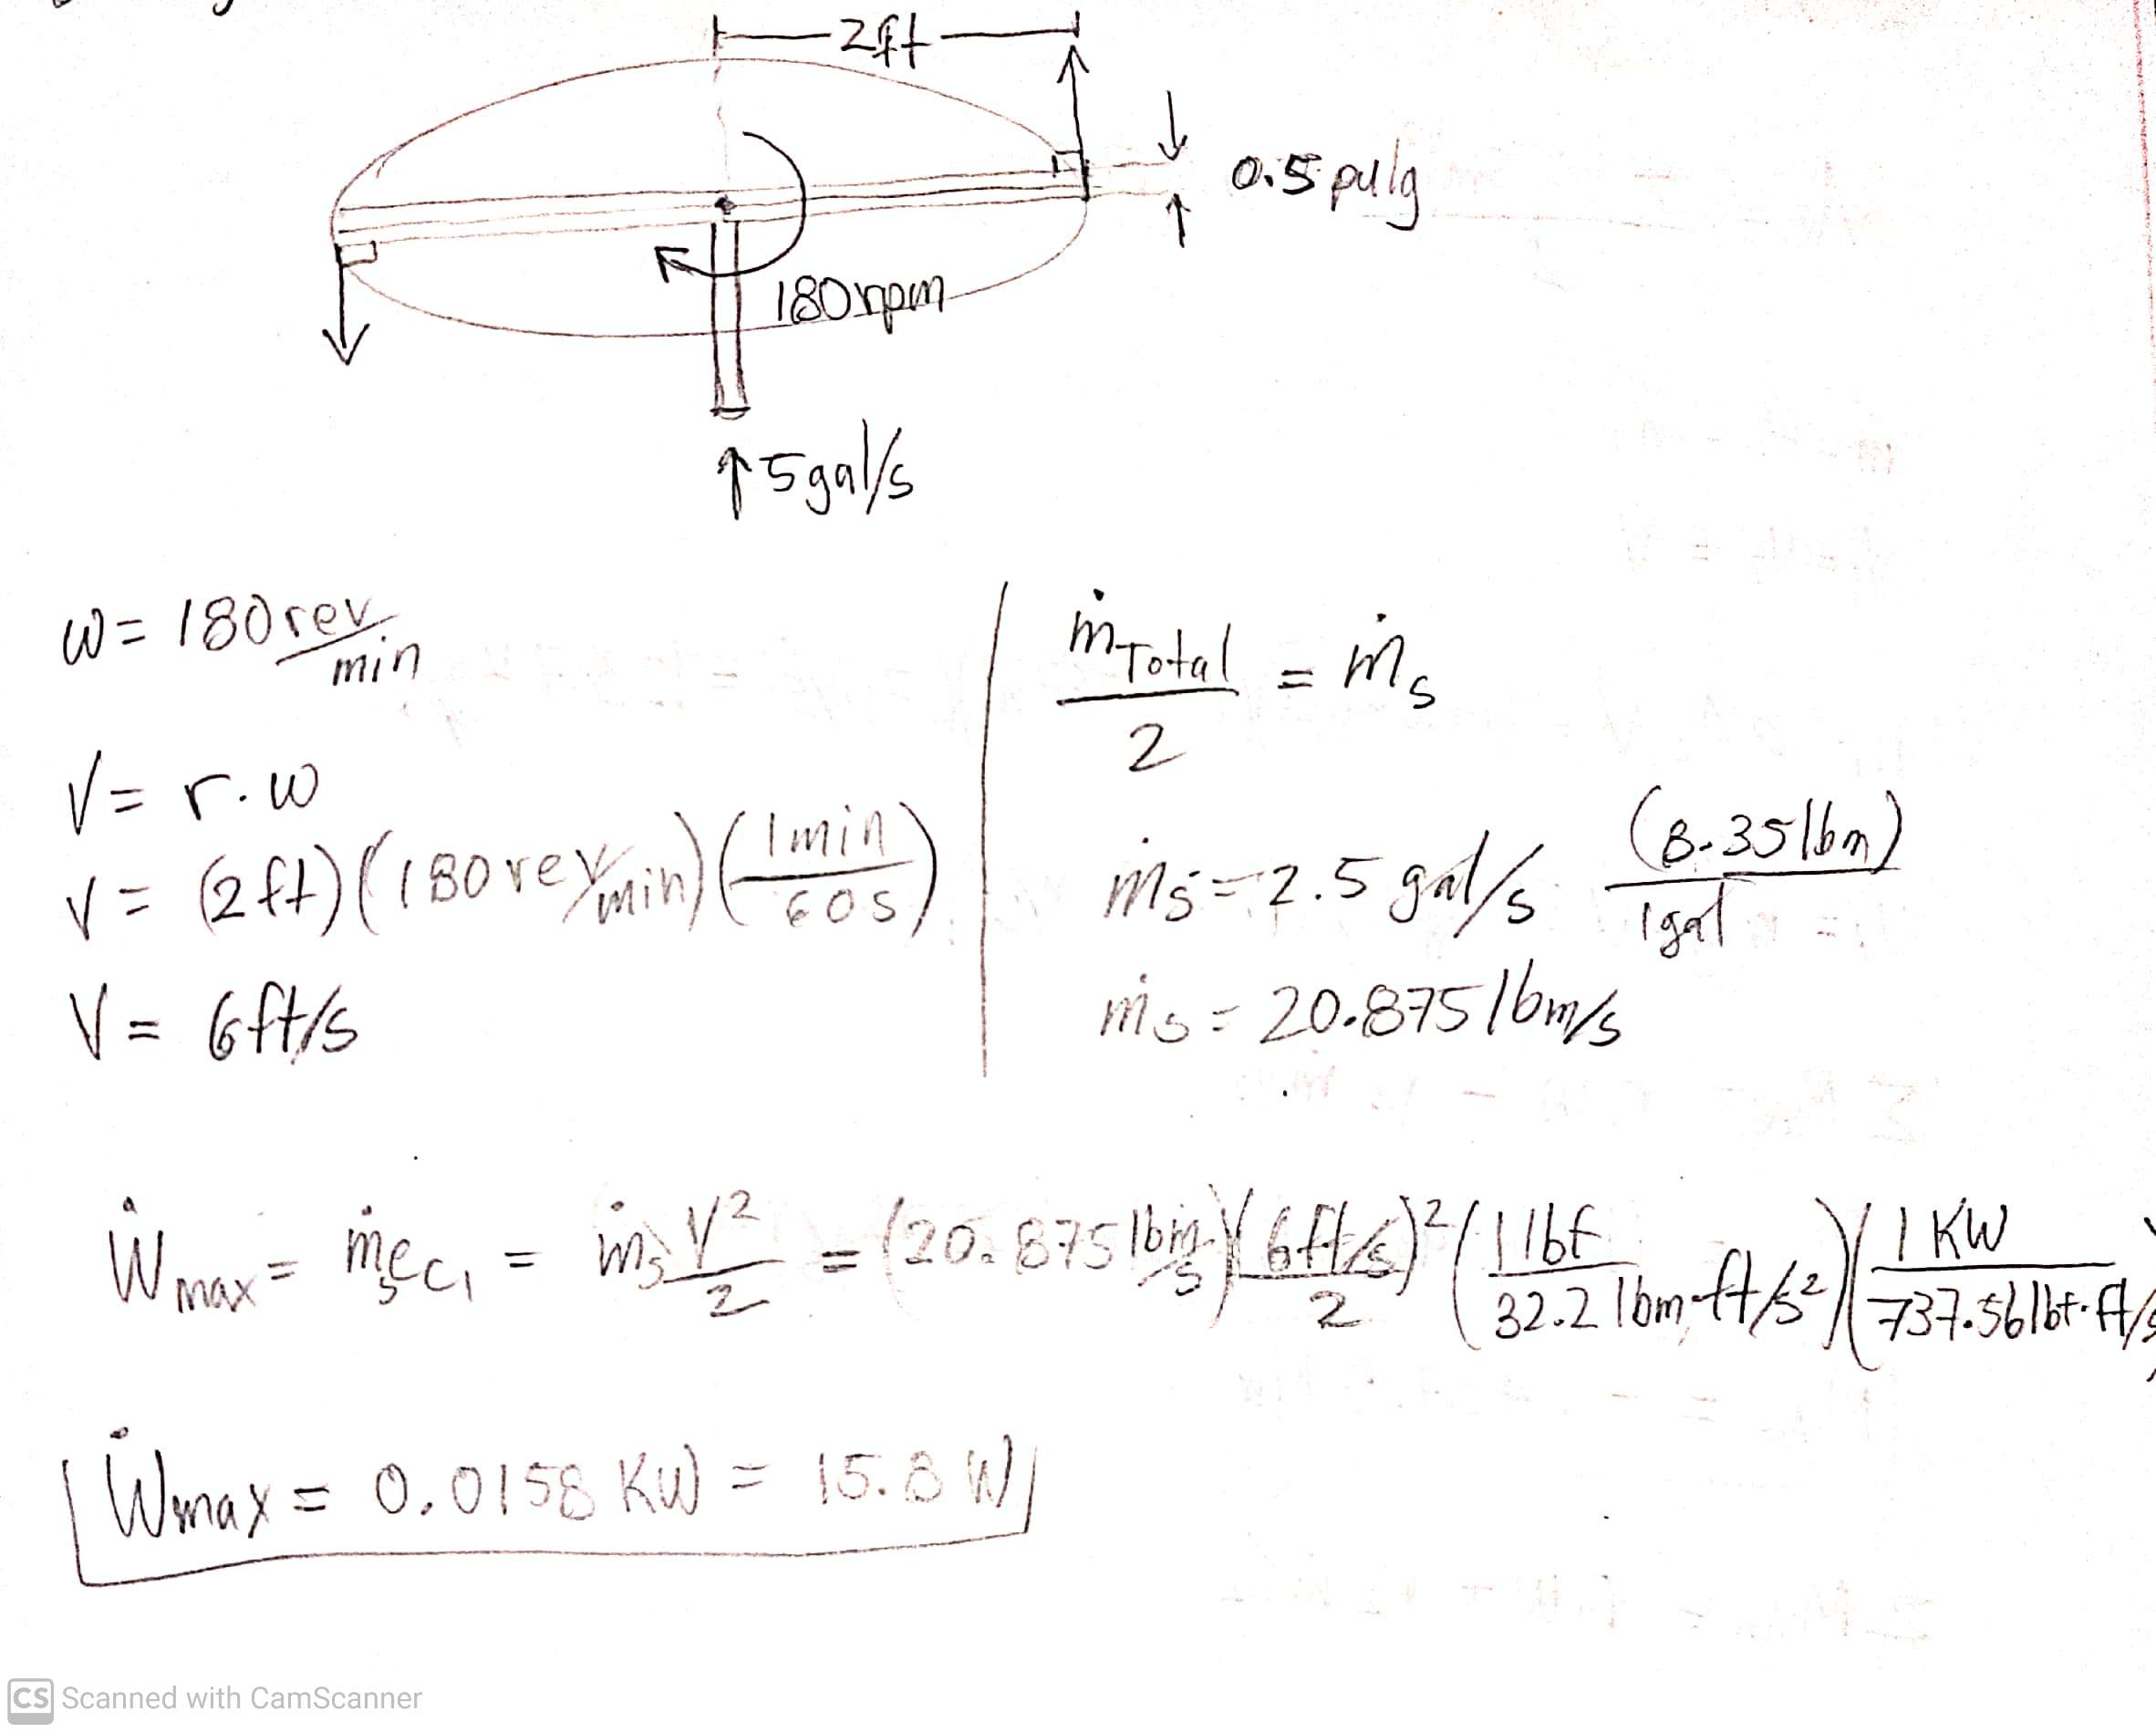 2ft
0.5 pulg
180 rpm
↑ 5 gal/s
ω = 180 rev/min
V = r · ω
V = (2 ft) (180 rev/min) (1 min / 60 s)
V = 6 ft/s
ṁTotal / 2 = ṁs
ṁs = 2.5 gal/s (8.35 lbm) / 1 gal
ṁs = 20.875 lbm/s
Ẇmax = ṁs ec, = ṁs V² / 2 = (20.875 lbm/s) (6 ft/s)² / 2 (1 lbf / 32.2 lbm·ft/s²) (1 KW / 737.56 lbf·ft/s
Ẇmax = 0.0158 KW = 15.8 W
CS Scanned with CamScanner